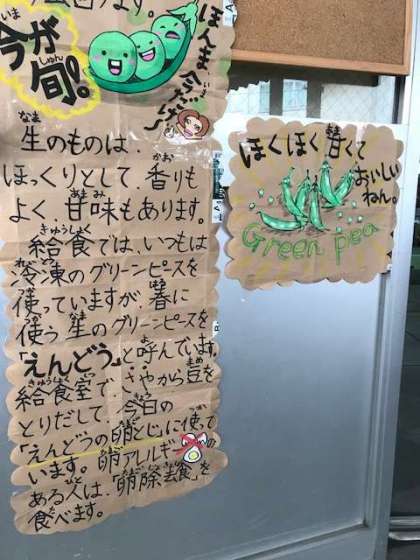 今が
旬!
ほんま
生のものは、
ほっくりとして、香りも
よく、甘味もあります。
給食では、いつもは
冷凍のグリーンピースを
使っていますが、春に
使う生のグリーンピースを
「えんどう」と呼んでいます。
給食室で、さやから豆を
とりだして、今日の
「えんどうの卵とじ」に使って
います。卵アレルギーの
ある人は、「卵除去食」を
食べます。
ほくほく甘くて
おいしい
ねん。
Green pea